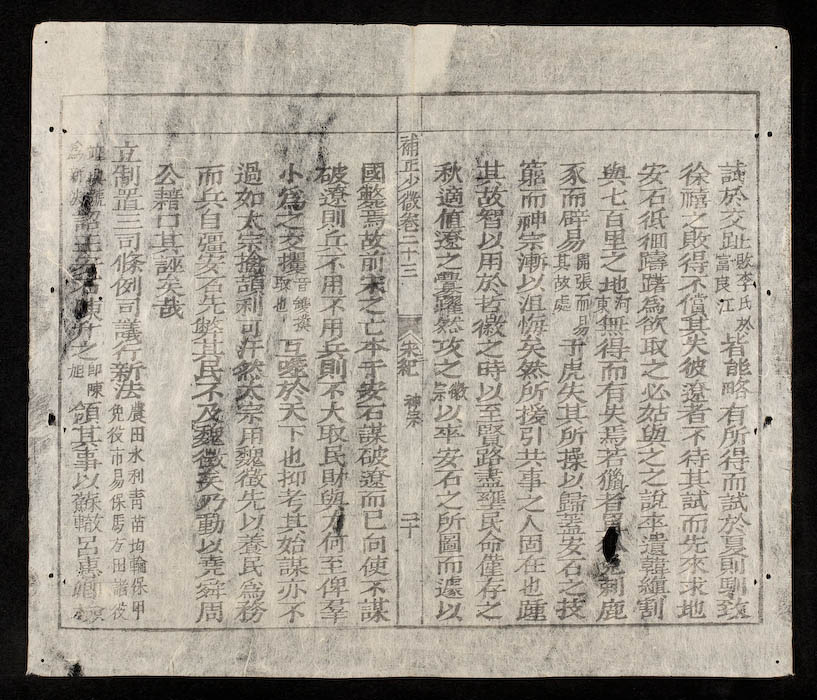 試於交趾敗李氏於富良江皆能略有所得而試於夏則馴致
徐禧之敗得不償其失彼遼者不待其試而先來求地
安石低徊躊躇爲欲取之必姑與之之說卒遣韓縝割
與七百里之地河東無得而有失焉若獵者 刺鹿
豕而辟易開張而易其故處于虎失其所操以歸蓋安石之技
窮而神宗漸以沮悔矣然所援引共事之人固在也踵
其故智以用於哲徽之時以至賢路盡壅民命僅存之
秋適値遼之釁躍然攻之徽宗以卒安石之所圖而遽以
補正少微卷二十三 宋紀 神宗 二十
國斃焉故前宋之亡本于安石謀破遼而已向使不謀
破遼則兵不用不用兵則不大取民財與 何至俾羣
小爲之交攫音钁撲取也互噬於天下也抑考其始謀亦不
過如太宗擒頡利可汗然太宗用魏徵先以養民爲務
而兵自彊安石先斃其民不及魏徵矣乃動以堯舜周
公藉口其誣矣哉
立制置三司條例司議行新法農田水利靑苗均輸保甲免役市易保馬方田諸役
詔王安石陳升之卽陳旭領其事以蘇轍呂惠卿